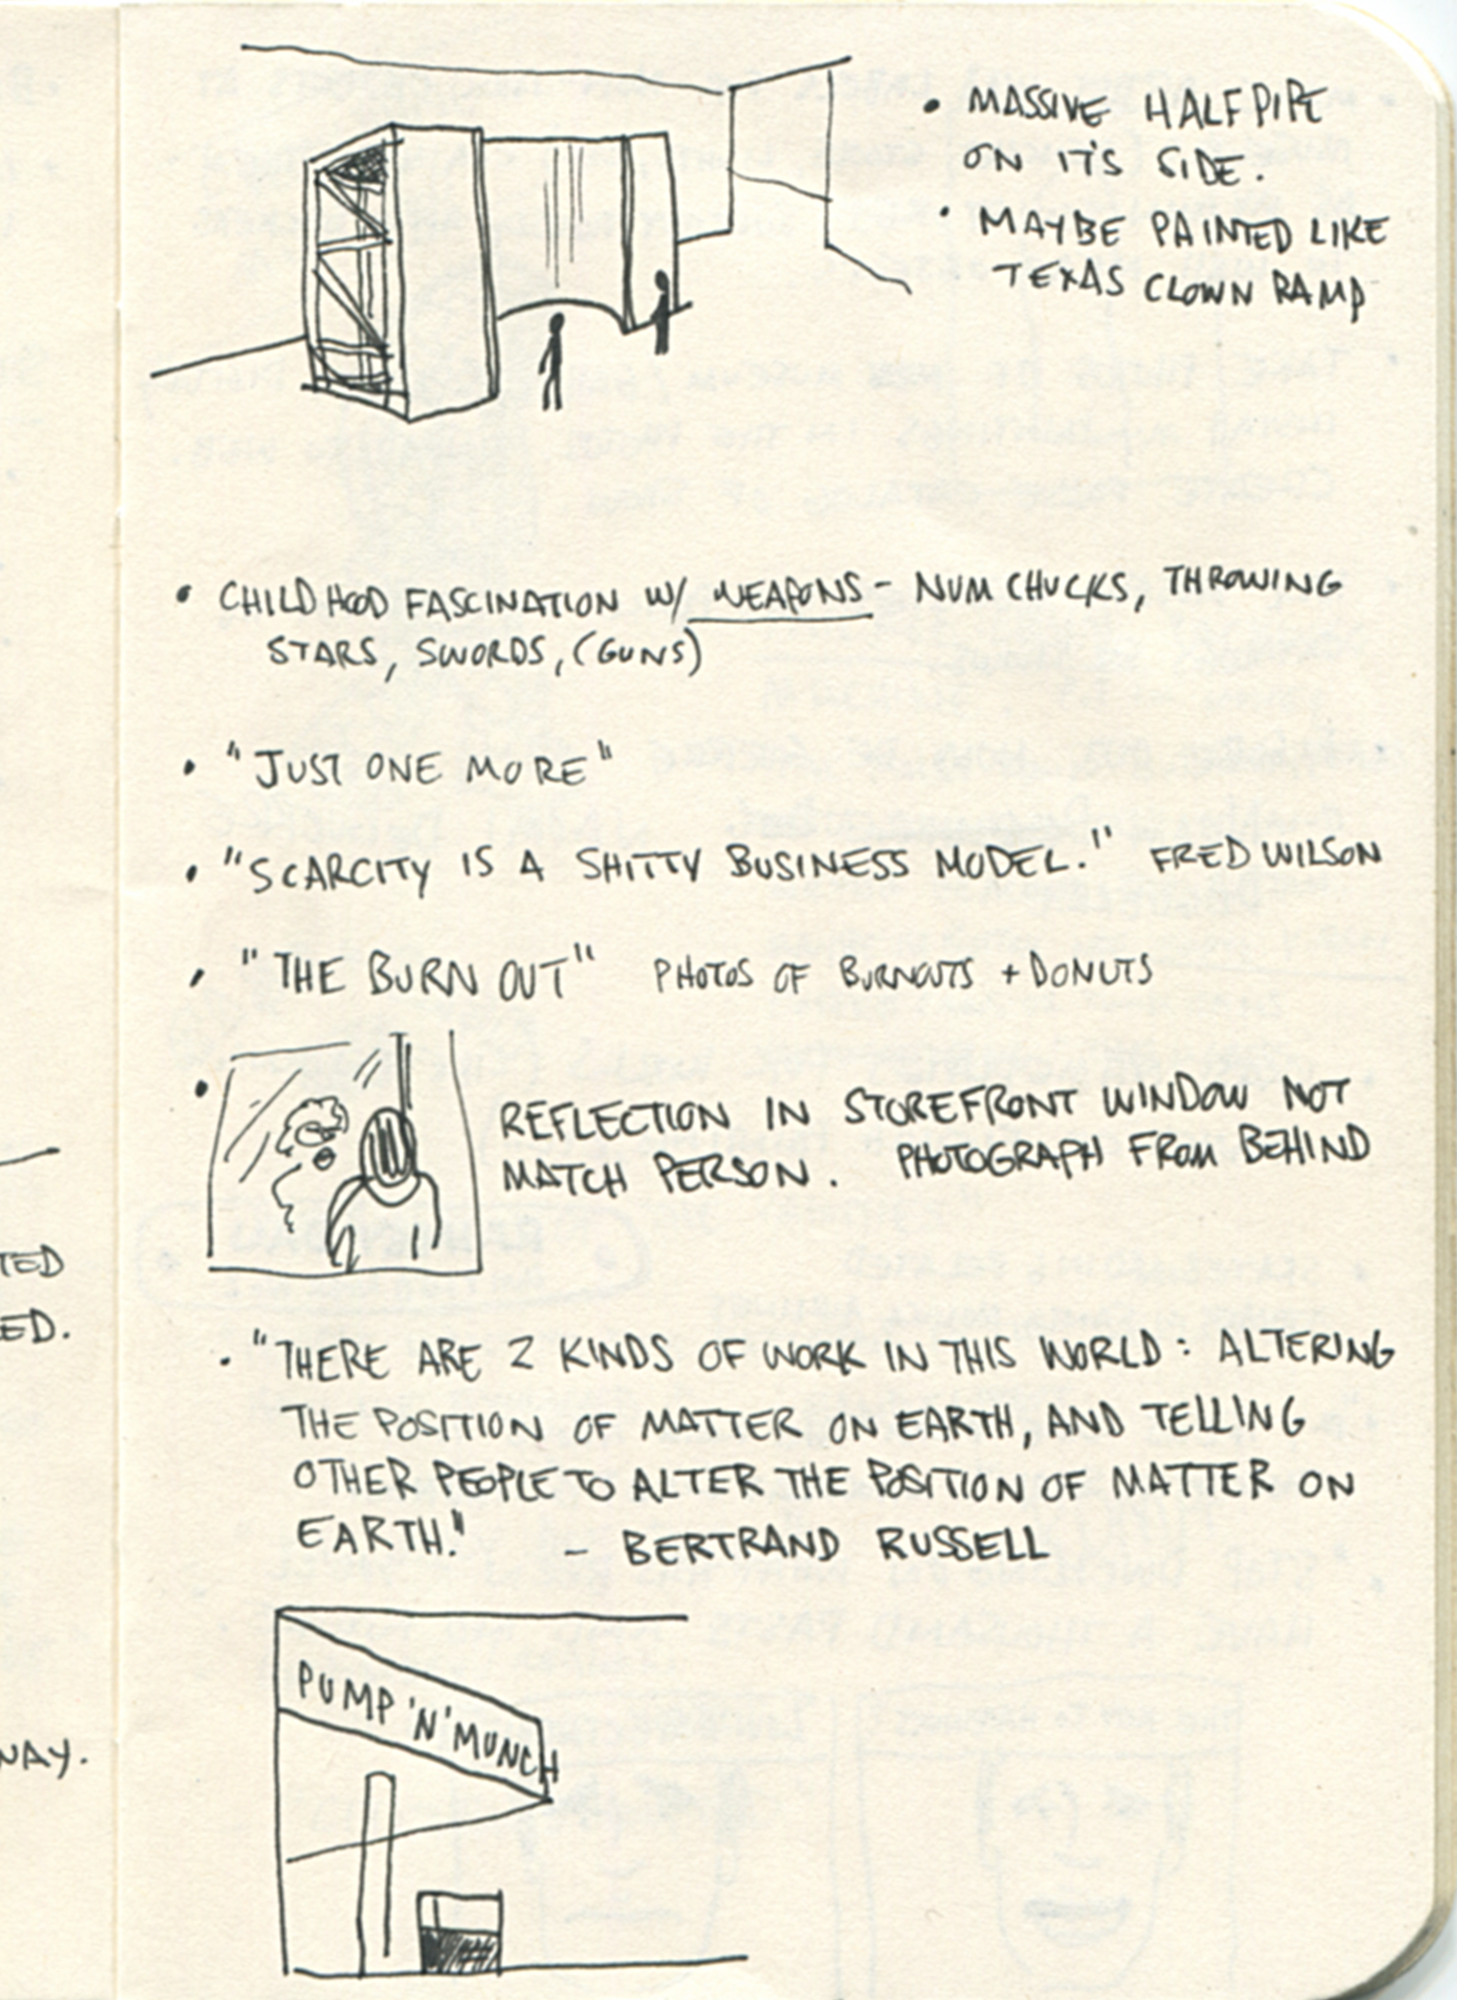 • MASSIVE HALFPIPE
ON IT'S SIDE.
• MAYBE PAINTED LIKE
TEXAS CLOWN RAMP
• CHILDHOOD FASCINATION W/ WEAPONS - NUMCHUCKS, THROWING
STARS, SWORDS, (GUNS)
• "JUST ONE MORE"
• "SCARCITY IS A SHITTY BUSINESS MODEL." FRED WILSON
• "THE BURN OUT" PHOTOS OF BURNOUTS + DONUTS
• REFLECTION IN STOREFRONT WINDOW NOT
MATCH PERSON. PHOTOGRAPH FROM BEHIND
• "THERE ARE 2 KINDS OF WORK IN THIS WORLD: ALTERING
THE POSITION OF MATTER ON EARTH, AND TELLING
OTHER PEOPLE TO ALTER THE POSITION OF MATTER ON
EARTH." - BERTRAND RUSSELL
PUMP 'N' MUNCH